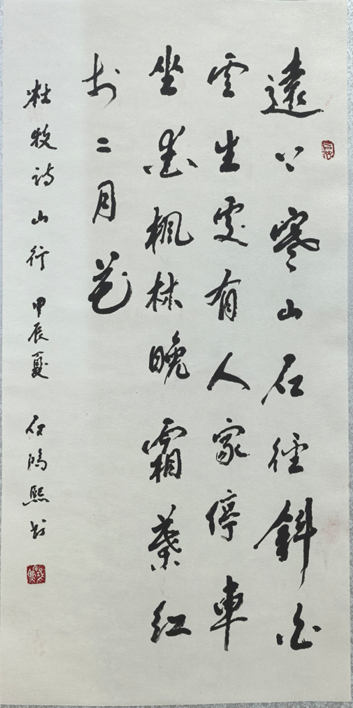 遠上寒山石徑斜白
雲生處有人家停車
坐愛楓林晚霜葉紅
於二月花
杜牧詩山行 甲辰夏 石鴻熙书